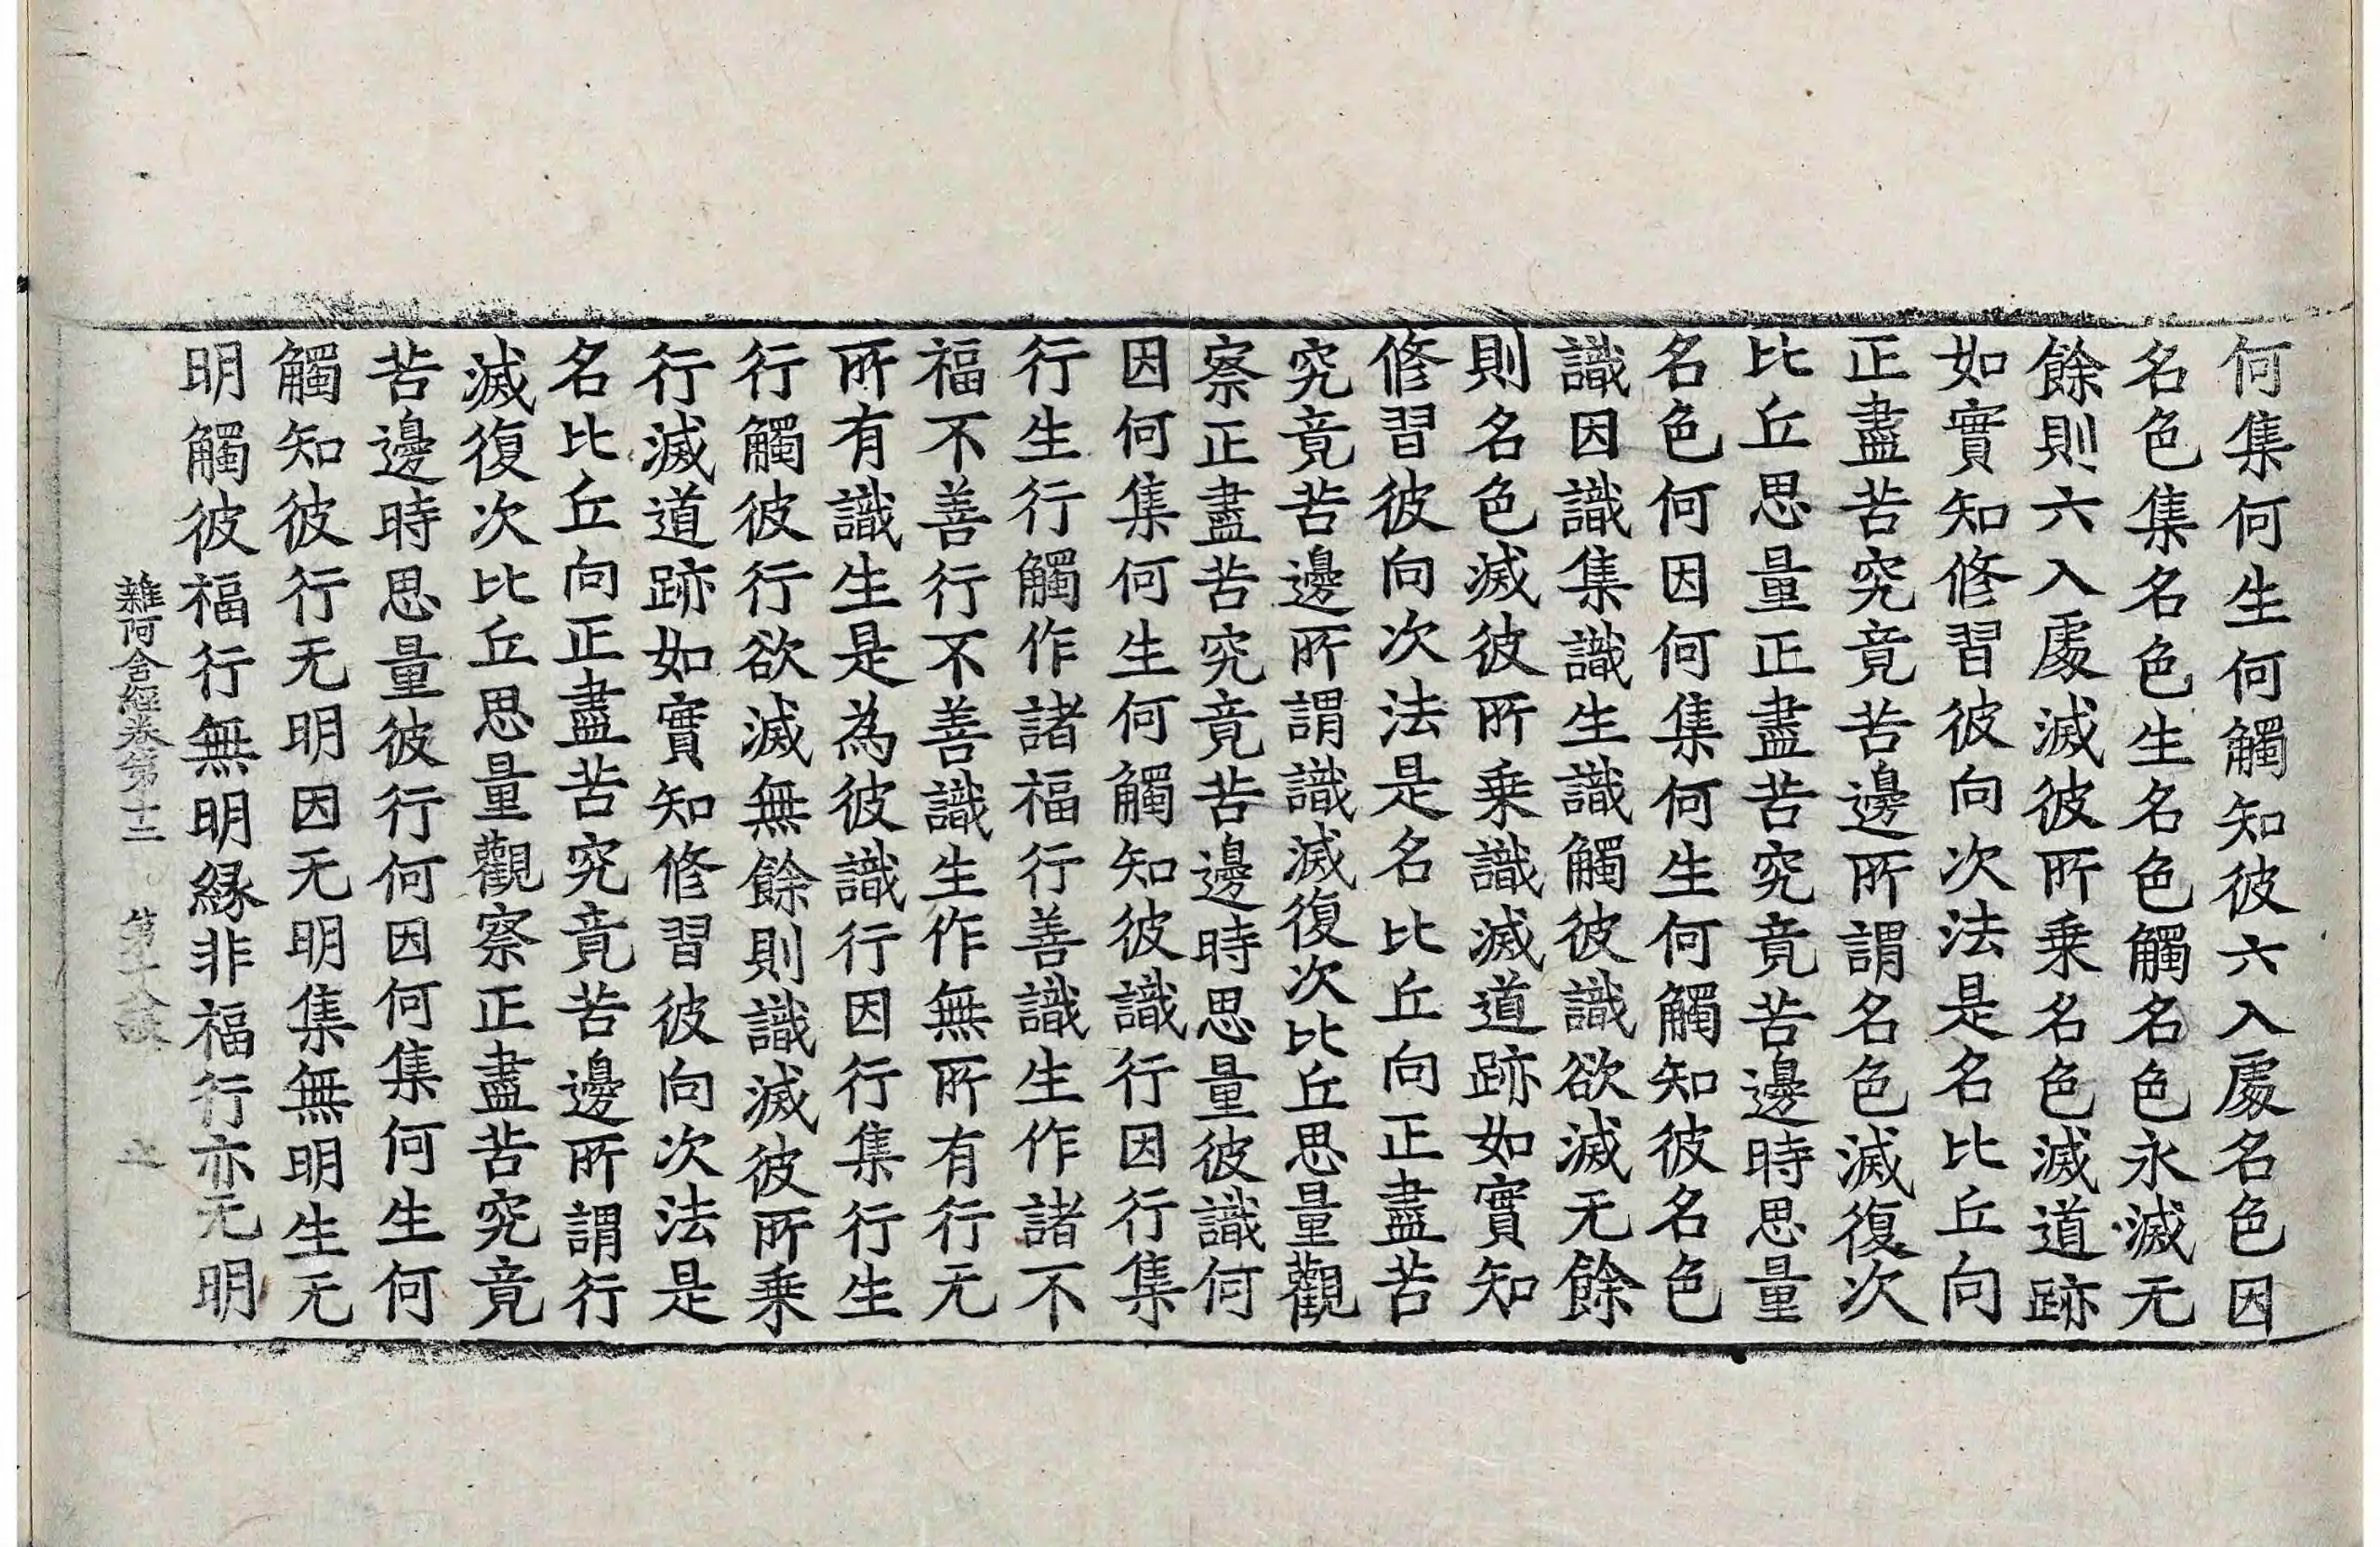 何集何生何觸知彼六入處名色因
名色集名色生名色觸名色永滅无
餘則六入處滅彼所乘名色滅道跡
如實知修習彼向次法是名比丘向
正盡苦究竟苦邊所謂名色滅復次
比丘思量正盡苦究竟苦邊時思量
名色何因何集何生何觸知彼名色
識因識集識生識觸彼識欲滅无餘
則名色滅彼所乘識滅道跡如實知
修習彼向次法是名比丘向正盡苦
究竟苦邊所謂識滅復次比丘思量觀
察正盡苦究竟苦邊時思量彼識何
因何集何生何觸知彼識行因行集
行生行觸作諸福行善識生作諸不
福不善行不善識生作無所有行无
所有識生是為彼識行因行集行生
行觸彼行欲滅無餘則識滅彼所乘
行滅道跡如實知修習彼向次法是
名比丘向正盡苦究竟苦邊所謂行
滅復次比丘思量觀察正盡苦究竟
苦邊時思量彼行何因何集何生何
觸知彼行无明因无明集無明生无
明觸彼福行無明緣非福行亦无明
雜阿含經卷第十二 第